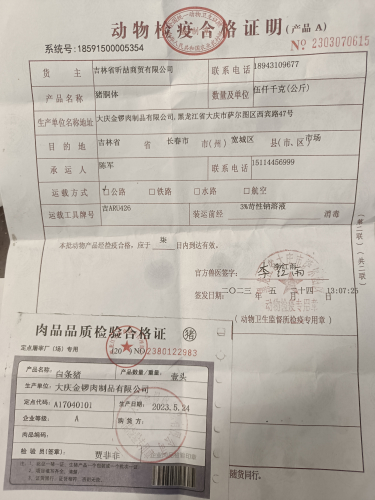 动物检疫合格证明(产品 A)
系统号:18591500005354
No 2303070615
货 主 吉林省昕喆商贸有限公司 联系电话 18943109677
产品名称 猪胴体 数量及单位 伍仟克(公斤)
生产单位名称地址 大庆金锣肉制品有限公司,黑龙江省大庆市萨尔图区西宾路47号
目的地 吉林省 省 长春市 市(州) 宽城区 县(市、区) 市场
承运人 陈军 联系电话 15114456999
运载方式 ☑公路 □铁路 □水路 □航空
运载工具牌号 吉ARU426 装运前经 3%苛性钠溶液 消毒
本批动物产品经检疫合格,应于 柒 日内到达有效。
官方兽医签字:
签发日期:二〇二三年 五 月 二十四 13:07:25
(动物卫生监督所检疫专用章)
肉品品质检验合格证 猪
定点屠宰厂(场)专用
NO 2380122983
产品名称: 白条猪 产品数量/重量: 壹头
生产单位: 大庆金锣肉制品有限公司
定点代码: A17040101 生产日期: 2023.5.24
企业等级: A 购货方:
肉品编码:
检验员(签章): 贾非非